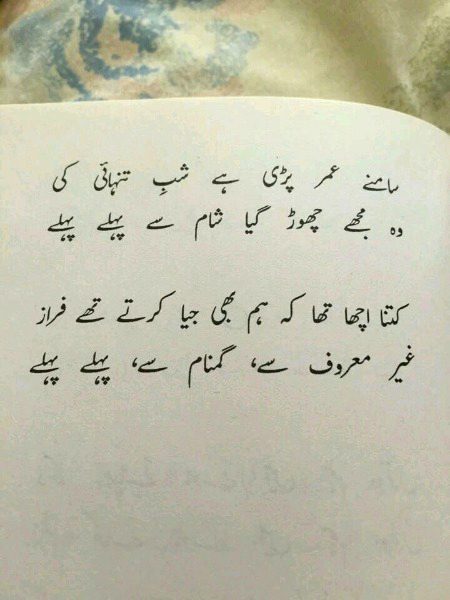 سامنے عمر پڑی ہے شبِ تنہائی کی
وہ مجھے چھوڑ گیا شام سے پہلے پہلے
کتنا اچھا تھا کہ ہم بھی جیا کرتے تھے فراز
غیر معروف سے، گمنام سے، پہلے پہلے